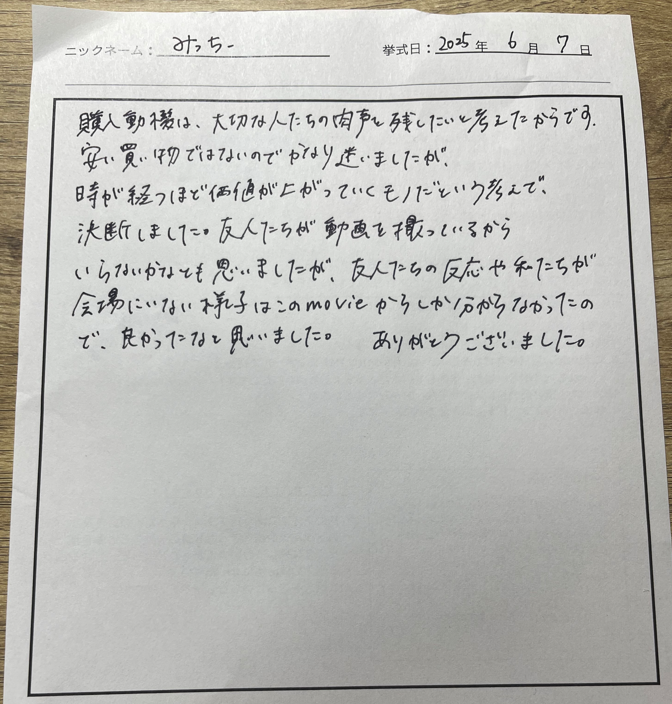 ニックネーム： みっちー 挙式日： 2025 年 6 月 7 日
購入動機は、大切な人たちの肉声を残したいと考えたからです。
安い買い物ではないのでかなり迷いましたが、
時が経つほど価値が上がっていくモノだという考えで、
決断しました。友人たちが動画を撮っているから
いらないかなとも思いましたが、友人たちの反応や私たちが
会場にいない様子はこのmovieからしか分からなかったの
で、良かったなと思いました。 ありがとうございました。